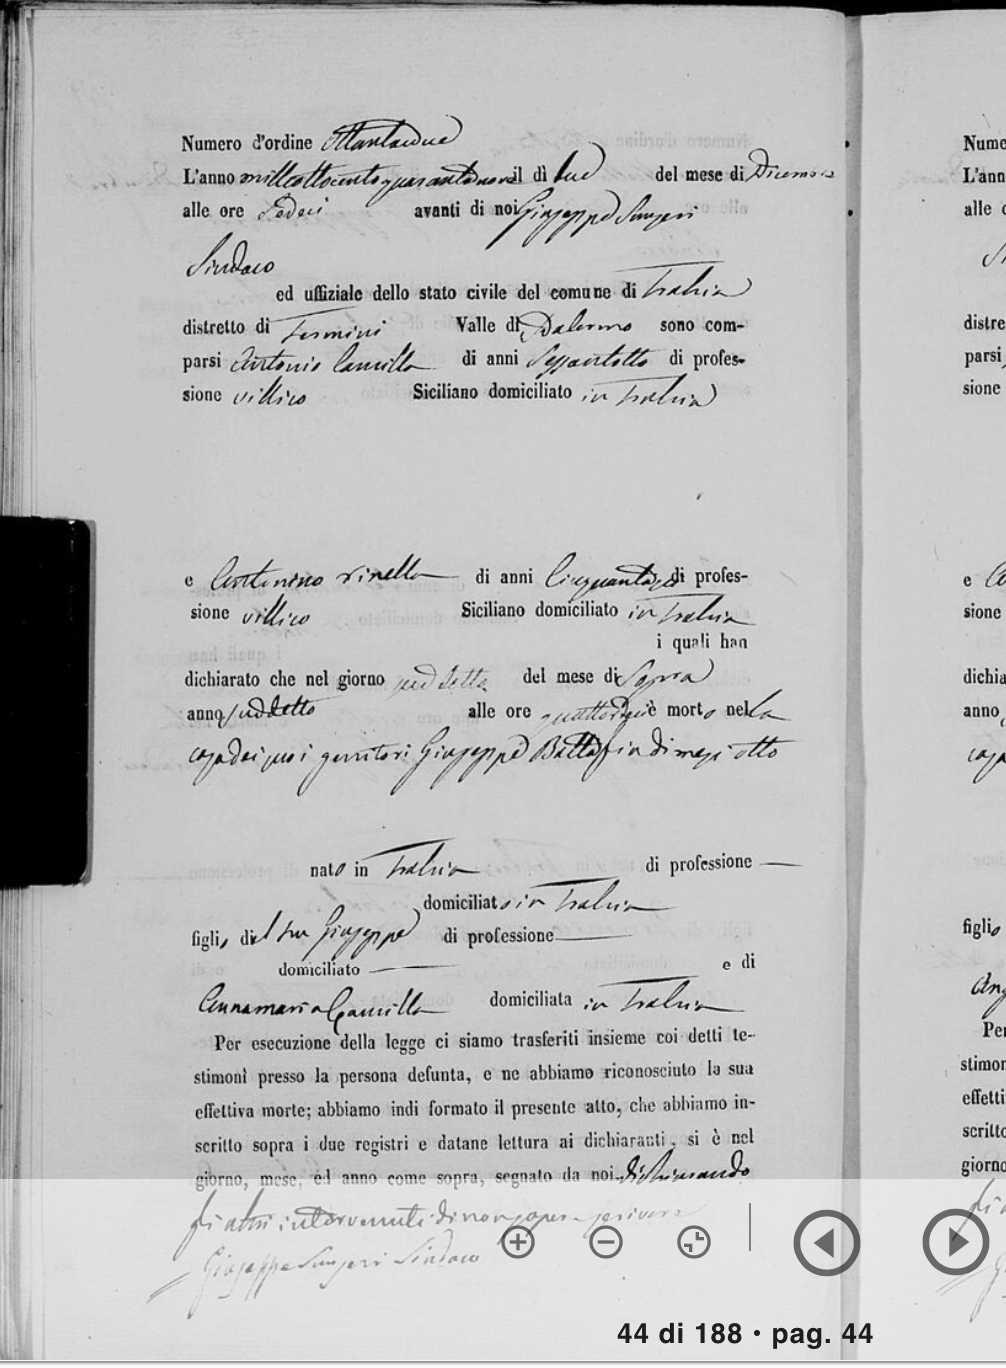 Numero d'ordine Ottantadue
L'anno millottocentoquarantanove il dì due del mese di Dicembre
alle ore Sedeci avanti di noi Giuseppe Sunseri
Sindaco
ed uffiziale dello stato civile del comune di Trabia
distretto di Termini Valle di Palermo sono com-
parsi Antonio Camilla di anni Sessantotto di profes-
sione villico Siciliano domiciliato in Trabia
e Antonino Rinella di anni Cinquanta di profes-
sione villico Siciliano domiciliato in Trabia
i quali han
dichiarato che nel giorno suddetto del mese di Sopra
anno suddetto alle ore quattordici è morto nella
casa dei suoi genitori Giuseppe Battaglia di mesi otto
nato in Trabia di professione
domiciliato in Trabia
figlio del fu Giuseppe di professione
domiciliato e di
Annamaria Camilla domiciliata in Trabia
Per esecuzione della legge ci siamo trasferiti insieme coi detti te-
stimoni presso la persona defunta, e ne abbiamo riconosciuto la sua
effettiva morte; abbiamo indi formato il presente atto, che abbiamo in-
scritto sopra i due registri e datane lettura ai dichiaranti, si è nel
giorno, mese, ed anno come sopra, segnato da noi dichiarando
gli altri intervenuti di non saper scrivere
Giuseppe Sunseri Sindaco
44 di 188 • pag. 44
Nume
L'ann
alle o
distre
parsi
sione
e
sione
dichia
anno
casa
figlio
Ang
Per
stimon
effetti
scritto
giorno